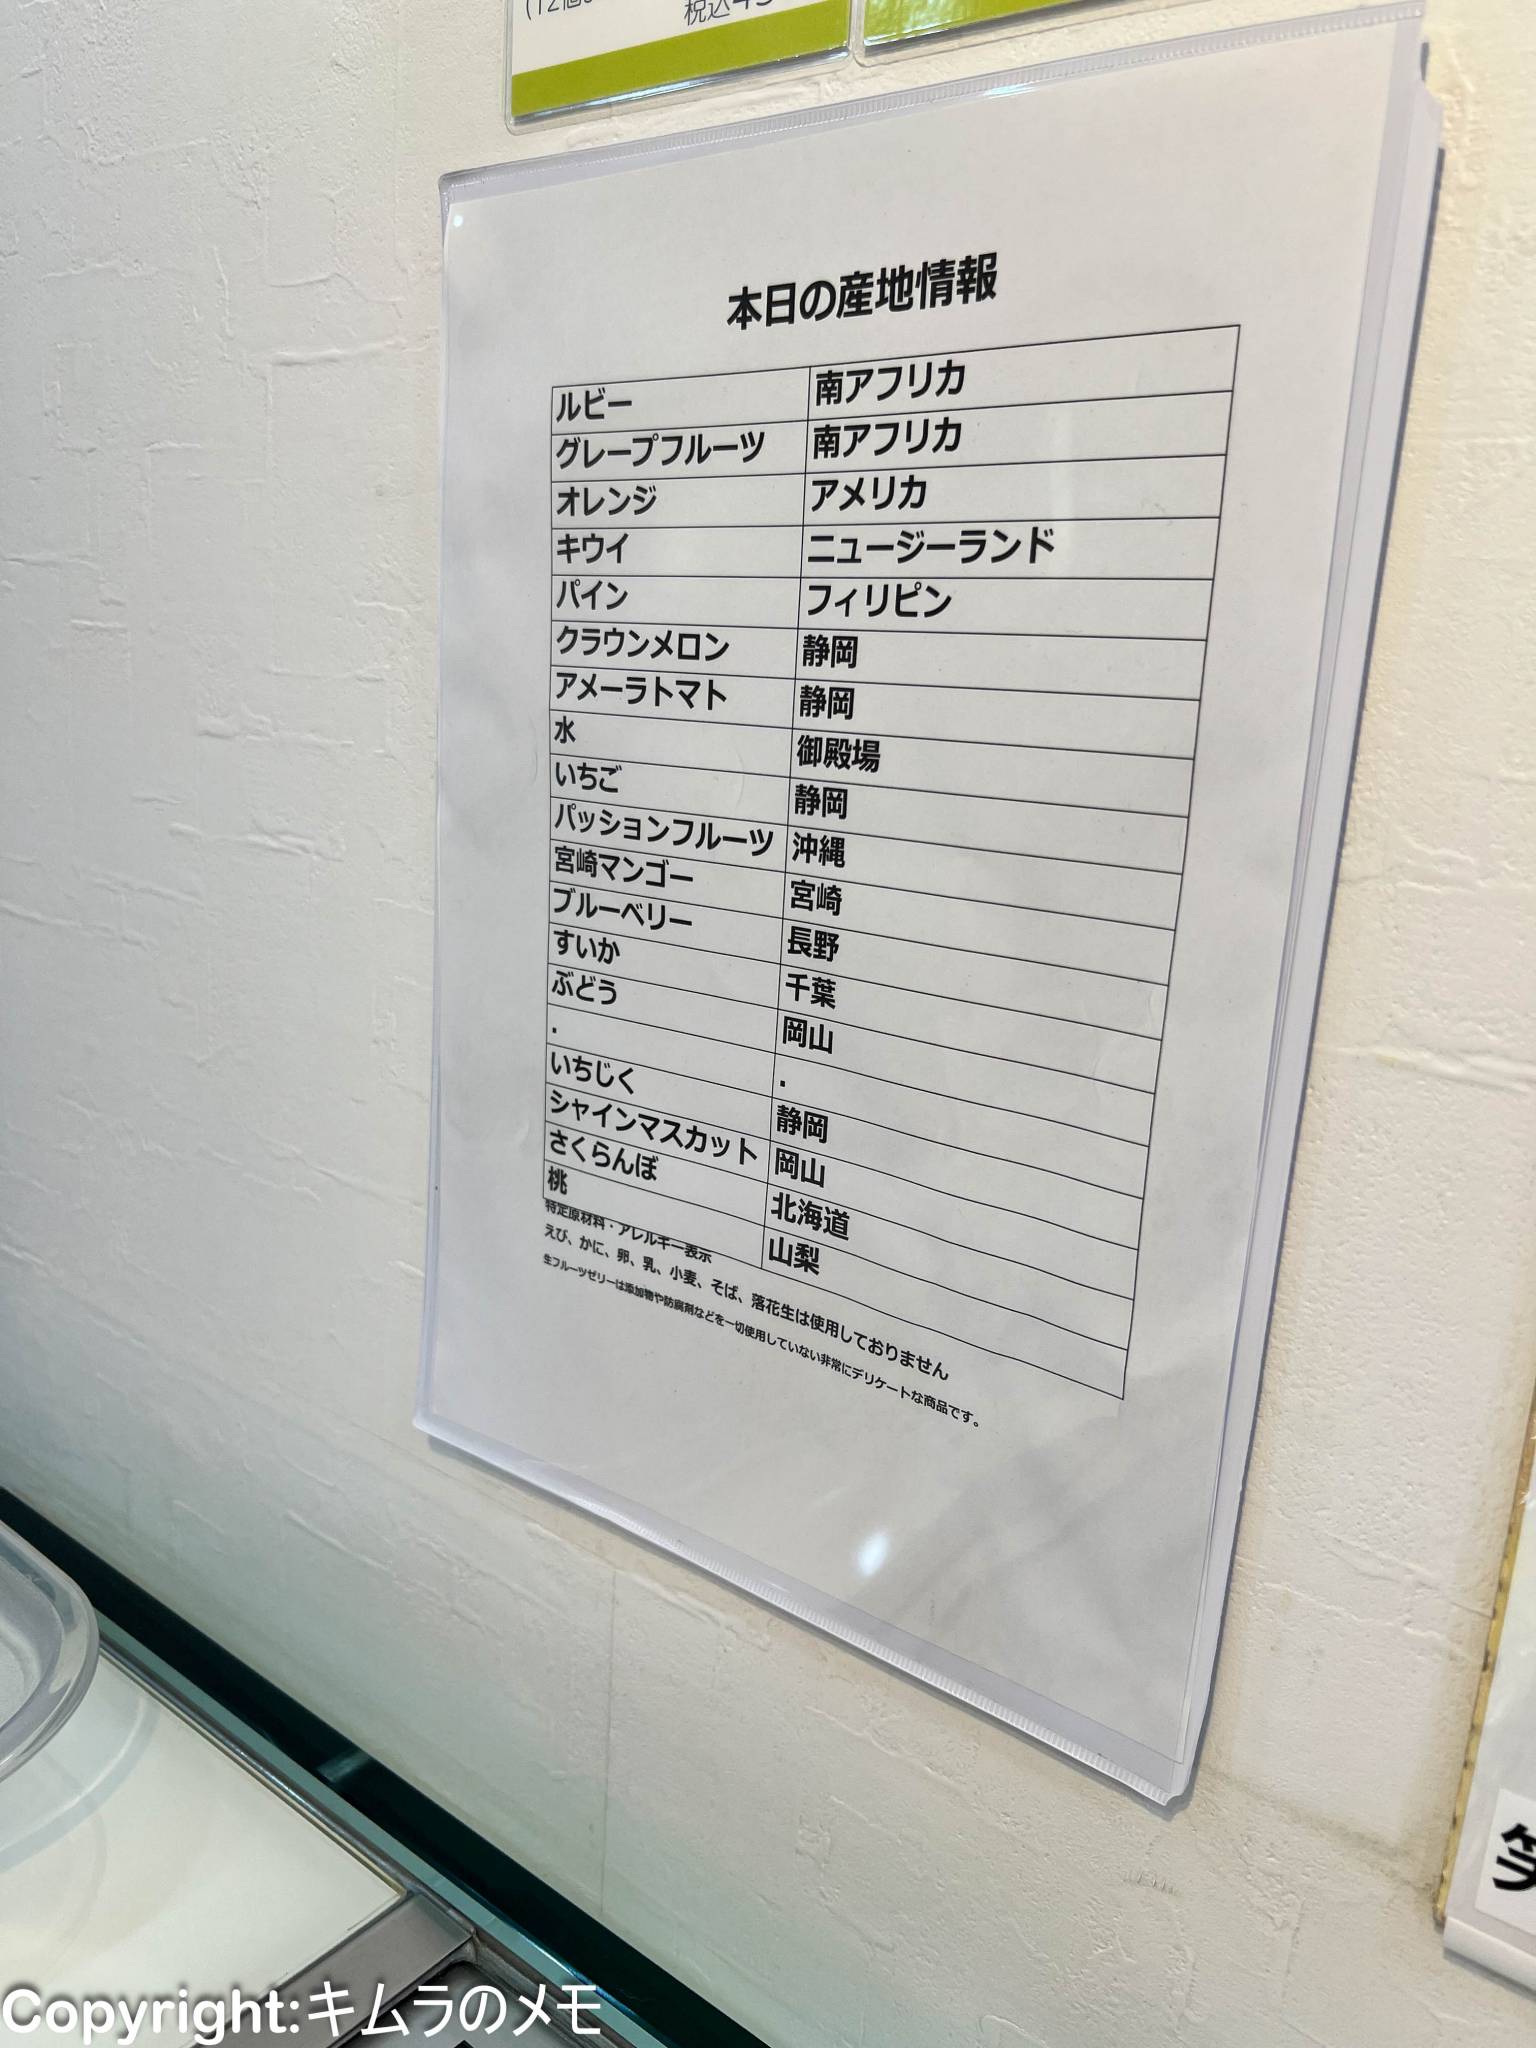 税込
本日の産地情報
ルビー 南アフリカ
グレープフルーツ 南アフリカ
オレンジ アメリカ
キウイ ニュージーランド
パイン フィリピン
クラウンメロン 静岡
アメーラトマト 静岡
水 御殿場
いちご 静岡
パッションフルーツ 沖縄
宮崎マンゴー 宮崎
ブルーベリー 長野
すいか 千葉
ぶどう 岡山
. .
いちじく 静岡
シャインマスカット 岡山
さくらんぼ 北海道
桃 山梨
特定原材料・アレルギー表示
えび、かに、卵、乳、小麦、そば、落花生は使用しておりません
生フルーツゼリーは添加物や防腐剤などを一切使用していない非常にデリケートな商品です。
Copyright:キムラのメモ